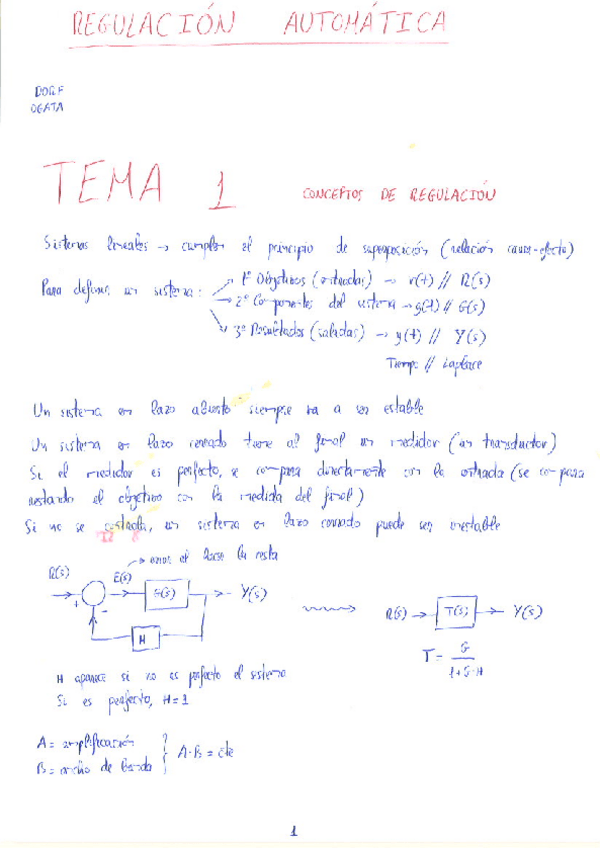 REGULACIÓN AUTOMÁTICA
DORF
OGATA
TEMA 1 CONCEPTOS DE REGULACIÓN
Sistemas lineales → cumplen el principio de superposición (relación causa-efecto)
Para definir un sistema:
1º Objetivos (entradas) → r(t) // R(s)
2º Componentes del sistema → g(t) // G(s)
3º Resultados (salidas) → y(t) // Y(s)
Tiempo // Laplace
Un sistema en lazo abierto siempre va a ser estable
Un sistema en lazo cerrado tiene al final un medidor (un transductor)
Si el medidor es perfecto, se compara directamente con la entrada (se compara
restando el objetivo con la medida del final)
Si no se, un sistema en lazo cerrado puede ser inestable
→ error al hacer la resta
R(s) + - E(s) G(s) → Y(s)
H
R(s) → T(s) → Y(s)
T = G / 1+G·H
H aparece si no es perfecto el sistema
Si es perfecto, H=1
A = amplificación
B = ancho de banda
A·B = cte
1